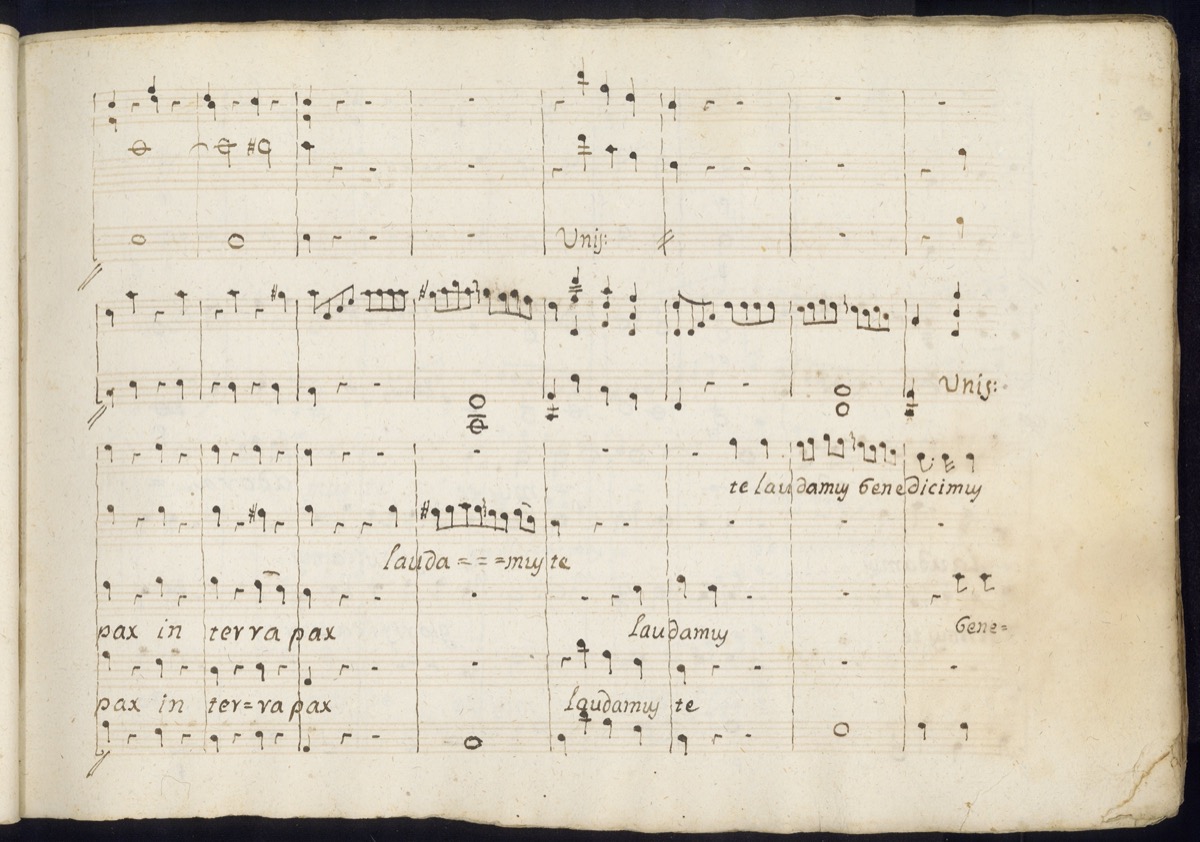 Unis:
Unis:
te laudamus benedicimus
lauda = = = mus te
pax in terra pax laudamus bene=
pax in ter=ra pax laudamus te